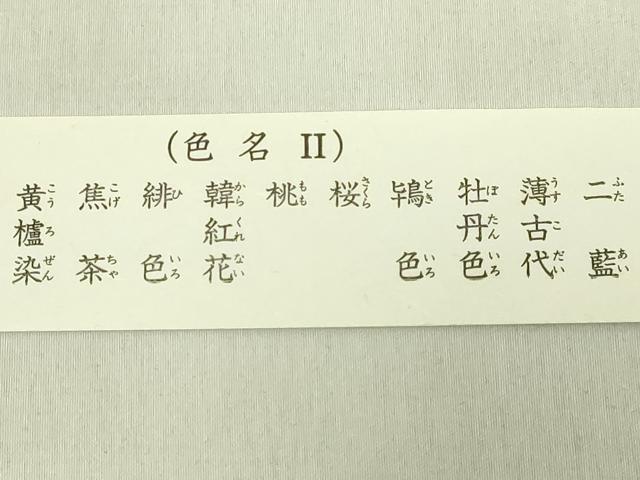 (色名 II)
二藍 ふたあい
薄古代 うすこだい
牡丹色 ぼたんいろ
鴇色 ときいろ
桜 さくら
桃 もも
韓紅花 からくれない
緋色 ひいろ
焦茶 こげちゃ
黄櫨染 こうろぜん